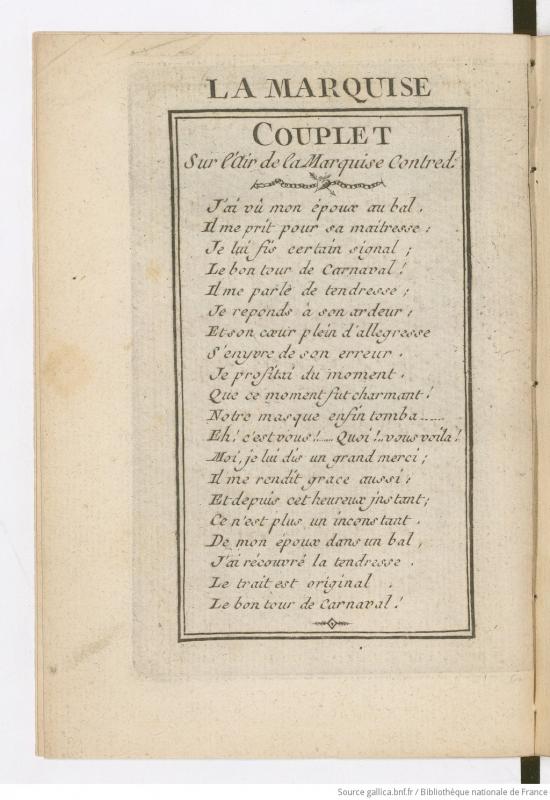 LA MARQUISE
COUPLET
Sur l'Air de la Marquise Contred.
J'ai vû mon époux au bal.
Il me prit pour sa maitresse:
Je lui fis certain signal;
Le bon tour de Carnaval!
Il me parle de tendresse;
Je reponds à son ardeur;
Et son cœur plein d'allegresse
S'enyvre de son erreur.
Je profitai du moment.
Que ce moment fut charmant!
Notre masque enfin tomba......
Eh! c'est vous!..... Quoi!..vous voilà!
Moi, je lui dis un grand merci;
Il me rendit grace aussi;
Et depuis cet heureux jnstant;
Ce n'est plus un inconstant.
De mon époux dans un bal,
J'ai récouvré la tendresse.
Le trait est original.
Le bon tour de Carnaval!
Source gallica.bnf.fr / Bibliothèque nationale de France